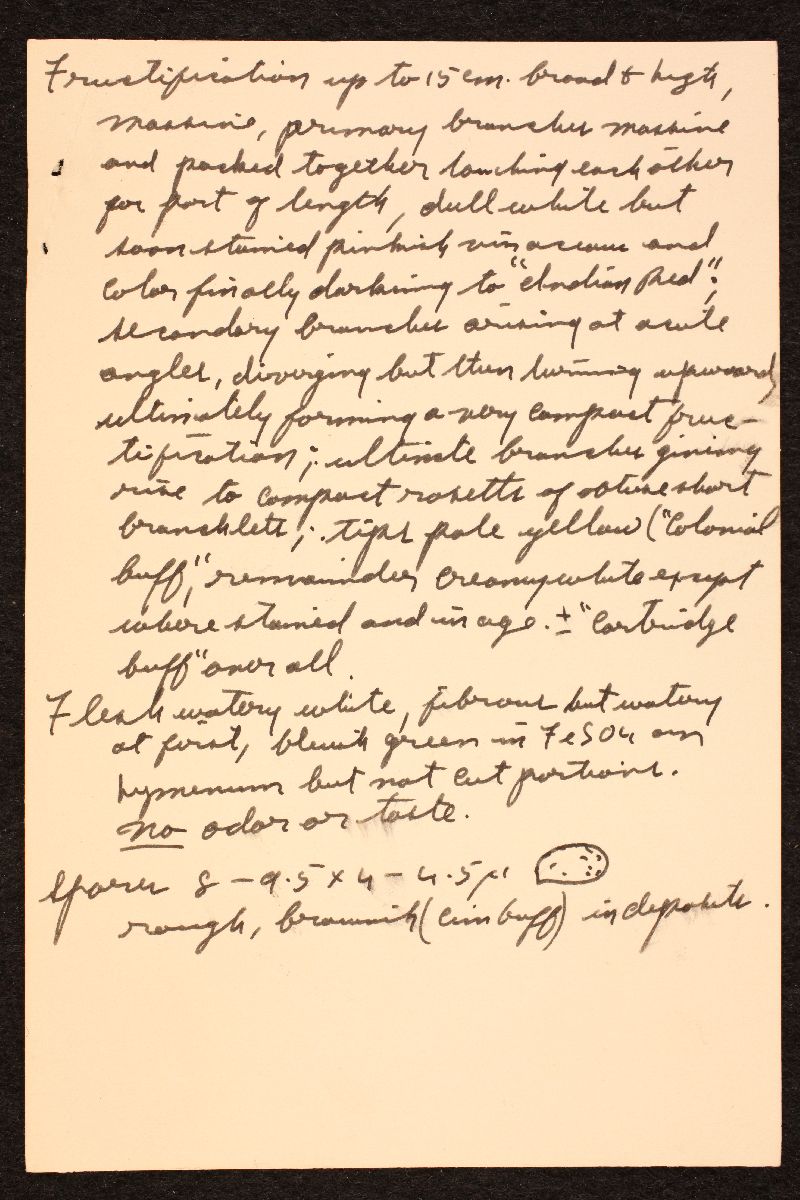 Fructification up to 15 cm. broad & high,
massive, primary branches massive
and packed together touching each other
for part of length, dull white but
soon stained pinkish vinaceous and
color finally darkening to "Indian Red";
secondary branches arising at acute
angles, diverging but then turning upwards
ultimately forming a very compact fruc-
tification; ultimate branches giving
rise to compact rosetts of obtuse short
branchlets; tips pale yellow ("Colonial
buff", remainder creamy white except
where stained and in age. ± "Cartridge
buff" over all.
Flesh watery white, fibrous but watery
at first, bluish green in FeSO4 on
hymenium but not cut portions.
no odor or taste.
Spores 8-9.5 x 4-4.5µ
rough, brownish (cinbuff) in deposits.